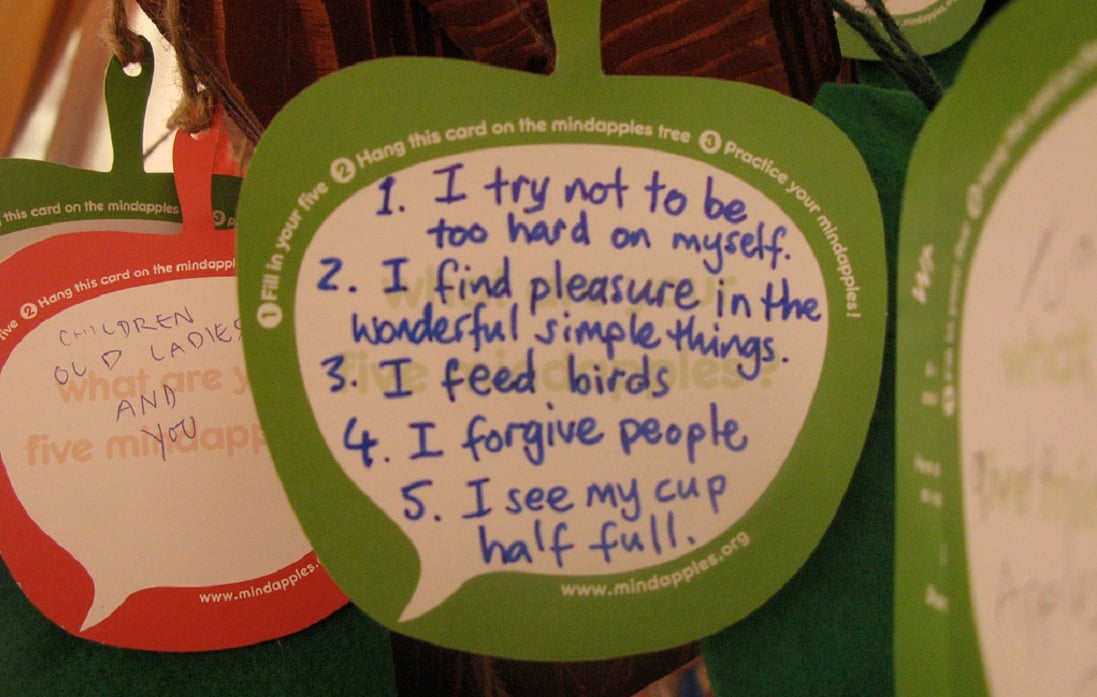 1 Fill in your five 2 Hang this card on the mindapples tree 3 Practice your mindapples!
1. I try not to be
too hard on myself.
2. I find pleasure in the
wonderful simple things.
3. I feed birds
4. I forgive people
5. I see my cup
half full.
what are your
five mindapples?
www.mindapples.org
this card on the mindapples
3
five 2 Hang this card on the mindappl
CHILDREN
OLD LADIES
AND
YOU
what are y
five mindapp
www.mindapples.o
www.mindapples.org
what